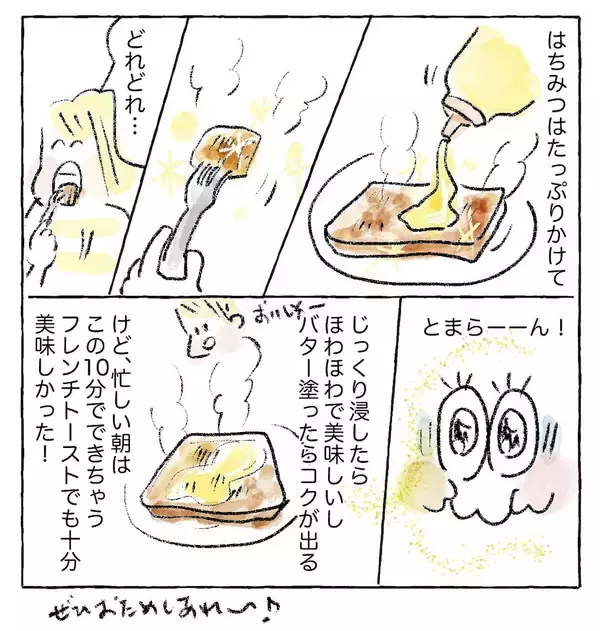 はちみつはたっぷりかけて
どれどれ…
とまらーーん！
じっくり浸したら
ほわほわで美味しいし
バター塗ったらコクが出る
おいしそー
けど、忙しい朝は
この10分でできちゃう
フレンチトーストでも十分
美味しかった！
ぜひおためしあれ〜♪